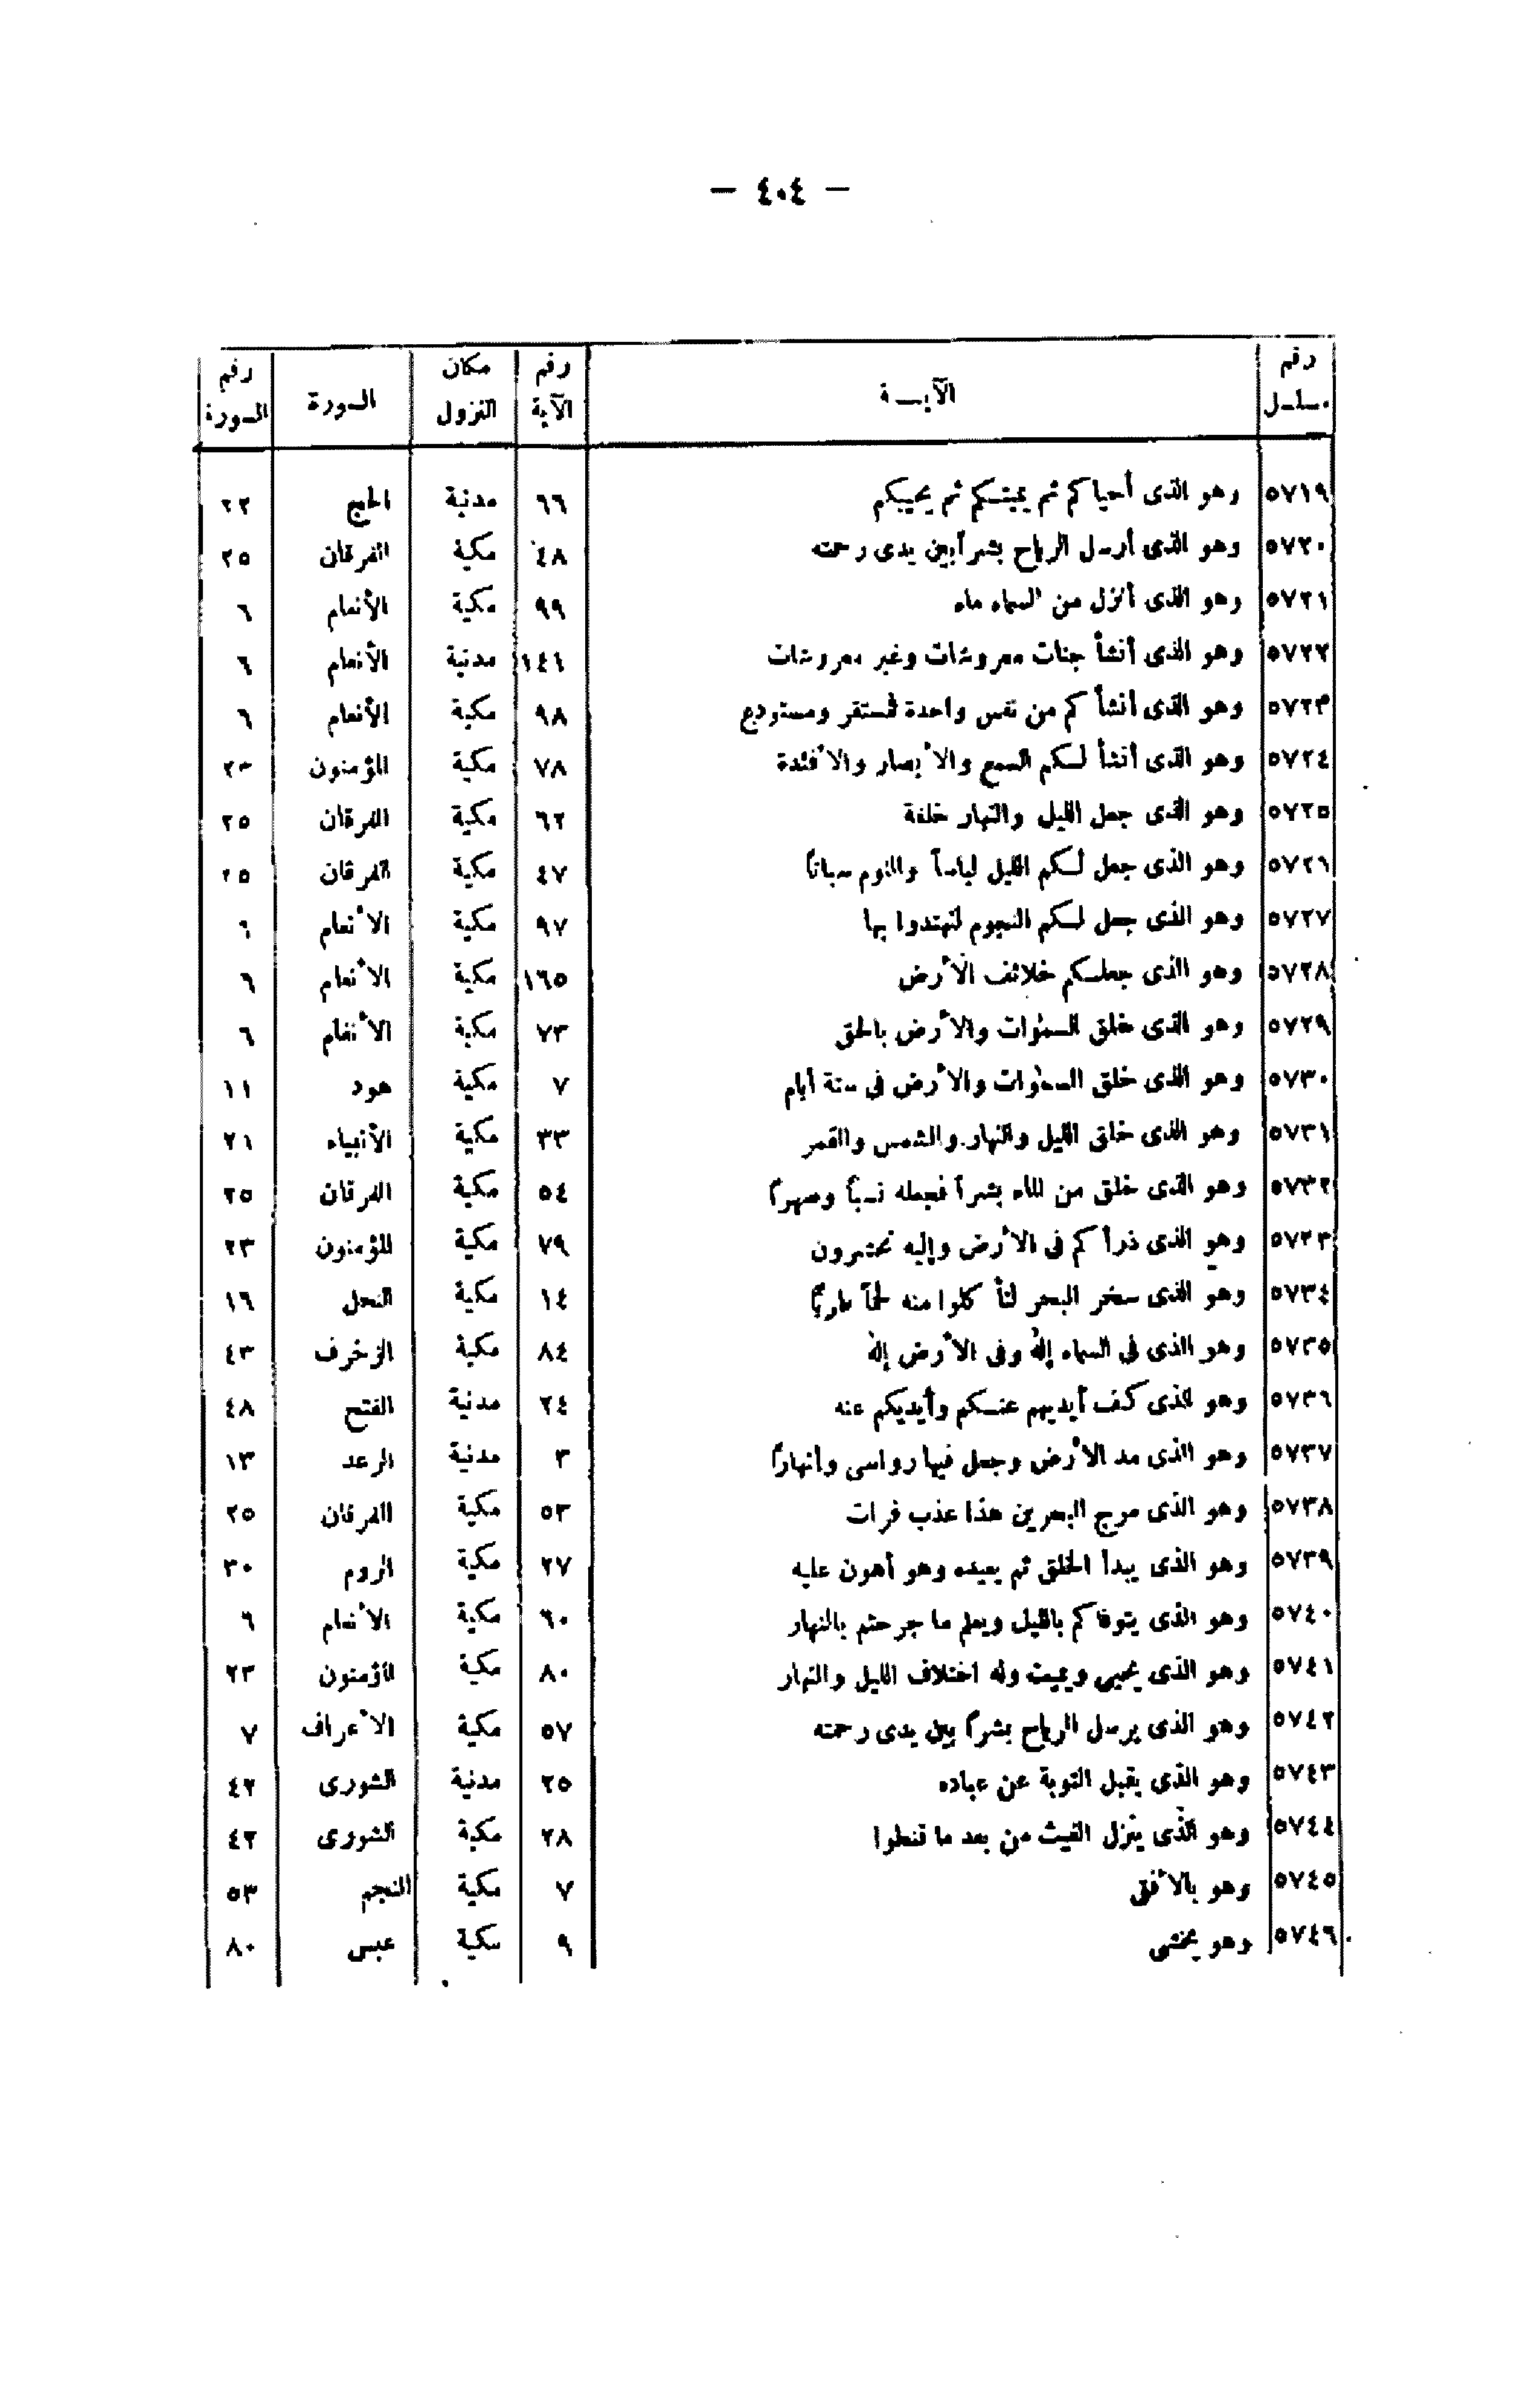 — ٤٠٤ —
رقم مسلسل الآيـــة رقم الآية مكان النزول السورة رقم السورة
٥٧١٩ وهو الذى أحياكم ثم يميتكم ثم يحييكم ٦٦ مدنية الحج ٢٢
٥٧٢٠ وهو الذى أرسل الرياح بشراً بين يدى رحمته ٤٨ مكية الفرقان ٢٥
٥٧٢١ وهو الذى أنزل من السماء ماء ٩٩ مكية الأنعام ٦
٥٧٢٢ وهو الذى أنشأ جنات معروشات وغير معروشات ١٤١ مدنية الأنعام ٦
٥٧٢٣ وهو الذى أنشأكم من نفس واحدة فمستقر ومستودع ٩٨ مكية الأنعام ٦
٥٧٢٤ وهو الذى أنشأ لكم السمع والأبصار والأفئدة ٧٨ مكية المؤمنون ٢٣
٥٧٢٥ وهو الذى جعل الليل والنهار خلفة ٦٢ مكية الفرقان ٢٥
٥٧٢٦ وهو الذى جعل لكم الليل لباساً والنوم سباتاً ٤٧ مكية الفرقان ٢٥
٥٧٢٧ وهو الذى جعل لكم النجوم لتهتدوا بها ٩٧ مكية الأنعام ٦
٥٧٢٨ وهو الذى جعلكم خلائف الأرض ١٦٥ مكية الأنعام ٦
٥٧٢٩ وهو الذى خلق السموات والأرض بالحق ٧٣ مكية الأنعام ٦
٥٧٣٠ وهو الذى خلق السموات والأرض فى ستة أيام ٧ مكية هود ١١
٥٧٣١ وهو الذى خلق الليل والنهار والشمس والقمر ٣٣ مكية الأنبياء ٢١
٥٧٣٢ وهو الذى خلق من الماء بشراً فجعله نسباً وصهراً ٥٤ مكية الفرقان ٢٥
٥٧٣٣ وهو الذى ذرأكم فى الأرض وإليه تحشرون ٧٩ مكية المؤمنون ٢٣
٥٧٣٤ وهو الذى سخر البحر لتأكلوا منه لحماً طرياً ١٤ مكية النحل ١٦
٥٧٣٥ وهو الذى فى السماء إله وفى الأرض إله ٨٤ مكية الزخرف ٤٣
٥٧٣٦ وهو الذى كف أيديهم عنكم وأيديكم عنه ٢٤ مدنية الفتح ٤٨
٥٧٣٧ وهو الذى مد الأرض وجعل فيها رواسى وأنهاراً ٣ مدنية الرعد ١٣
٥٧٣٨ وهو الذى مرج البحرين هذا عذب فرات ٥٣ مكية الفرقان ٢٥
٥٧٣٩ وهو الذى يبدأ الخلق ثم يعيده وهو أهون عليه ٢٧ مكية الروم ٣٠
٥٧٤٠ وهو الذى يتوفاكم بالليل ويعلم ما جرحتم بالنهار ٦٠ مكية الأنعام ٦
٥٧٤١ وهو الذى يحيى ويميت وله اختلاف الليل والنهار ٨٠ مكية المؤمنون ٢٣
٥٧٤٢ وهو الذى يرسل الرياح بشراً بين يدى رحمته ٥٧ مكية الأعراف ٧
٥٧٤٣ وهو الذى يقبل التوبة عن عباده ٢٥ مدنية الشورى ٤٢
٥٧٤٤ وهو الذى ينزل الغيث من بعد ما قنطوا ٢٨ مكية الشورى ٤٢
٥٧٤٥ وهو بالأفق ٧ مكية النجم ٥٣
٥٧٤٦ وهو يخشى ٩ مكية عبس ٨٠